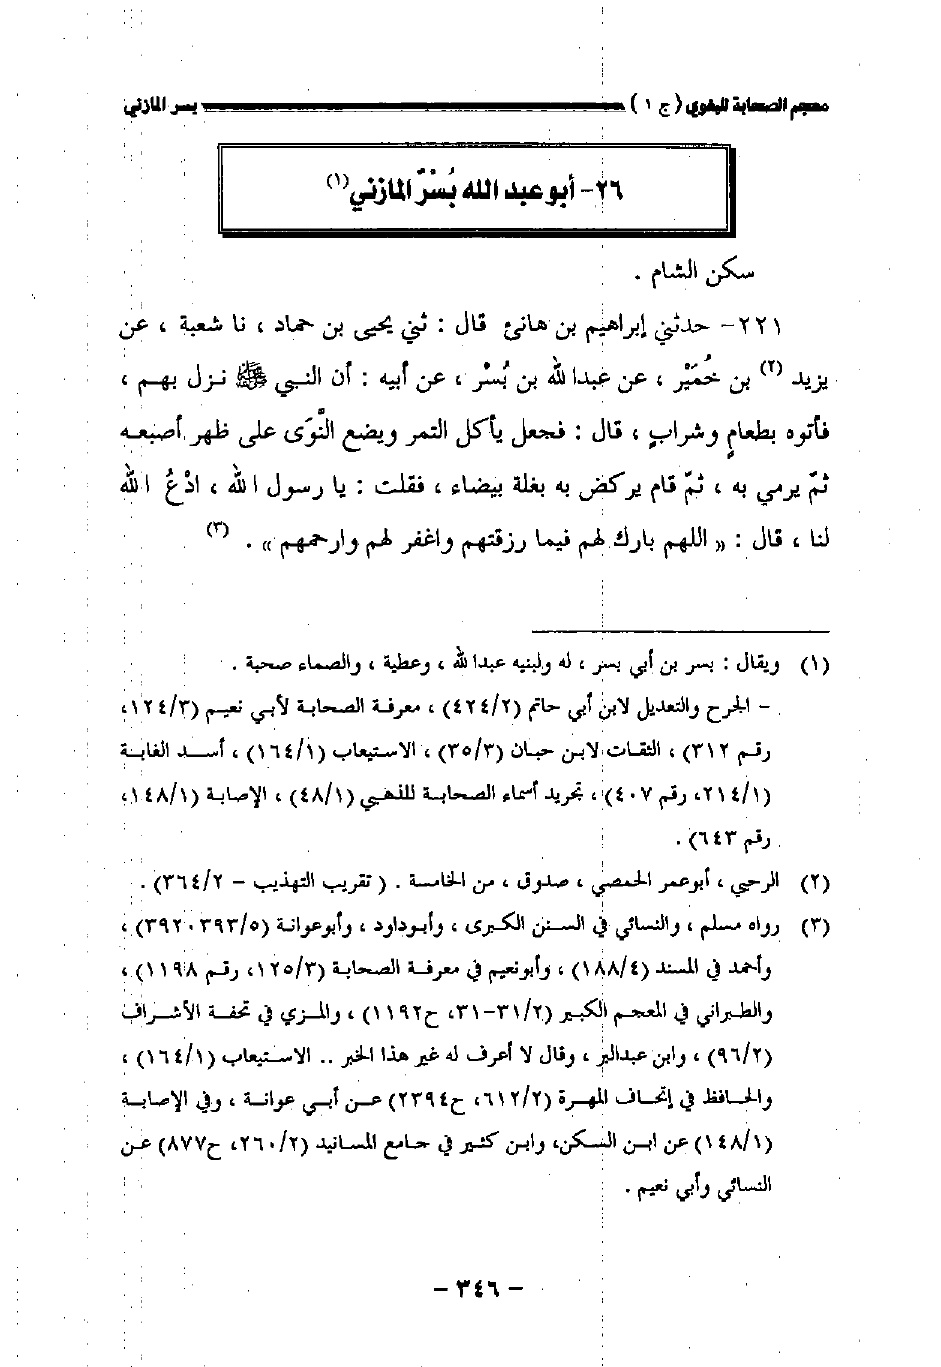 معجم الصحابة للبغوي (ج ١) بسر المازني
٢٦- أبو عبد الله بُسْرٌ المازني (١)
سكن الشام .
٢٢١- حدثني إبراهيم بن هانئ قال : ثني يحيى بن حماد ، نا شعبة ، عن
يزيد (٢) بن خُمَيْر ، عن عبدالله بن بُسْر ، عن أبيه : أن النبي ﷺ نزل بهم ،
فأتوه بطعامٍ وشرابٍ ، قال : فجعل يأكل التمر ويضع النَّوَى على ظهر أصبعه
ثمّ يرمي به ، ثمّ قام يركض به بغلة بيضاء ، فقلت : يا رسول الله ، ادْعُ الله
لنا ، قال : « اللهم بارك لهم فيما رزقتهم واغفر لهم وارحمهم » . (٣)
(١) ويقال : بسر بن أبي بسر ، له ولبنيه عبدالله ، وعطية ، والصماء صحبة .
- الجرح والتعديل لابن أبي حاتم (٤٢٤/٢) ، معرفة الصحابة لأبي نعيم (١٢٤/٣،
رقم ٣١٢) ، الثقات لابن حبان (٣٥/٣) ، الاستيعاب (١٦٤/١) ، أسد الغابة
(٢١٤/١، رقم ٤٠٧) ، تجريد أسماء الصحابة للذهبي (٤٨/١) ، الإصابة (١٤٨/١،
رقم ٦٤٣) .
(٢) الرحبي ، أبوعمر الحمصي ، صدوق ، من الخامسة . ( تقريب التهذيب – ٣٦٤/٢) .
(٣) رواه مسلم ، والنسائي في السنن الكبرى ، وأبوداود ، وأبوعوانة (٣٩٢،٣٩٣/٥) ،
وأحمد في المسند (١٨٨/٤) ، وأبونعيم في معرفة الصحابة (١٢٥/٣، رقم ١١٩٨) ،
والطبراني في المعجم الكبير (٣١/٢-٣١، ح١١٩٢) ، والمزي في تحفة الأشراف
(٩٦/٢) ، وابن عبدالبر ، وقال لا أعرف له غير هذا الخبر .. الاستيعاب (١٦٤/١) ،
والحافظ في إتحاف المهرة (٦١٢/٢، ح٢٣٩٤) عن أبي عوانة ، وفي الإصابة
(١٤٨/١) عن ابن السكن، وابن كثير في جامع المسانيد (٢٦٠/٢، ح٨٧٧) عن
النسائي وأبي نعيم .
- ٣٤٦ -